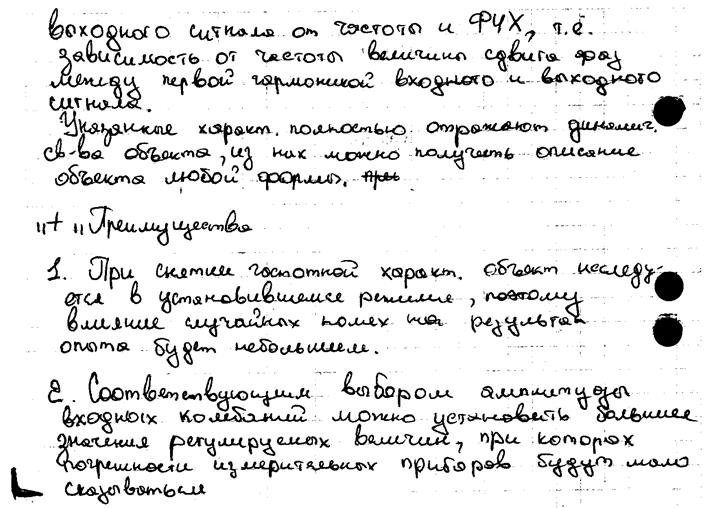 выходного сигнала от частоты и ФЧХ, т.е.
зависимость от частоты величины сдвига фаз
между первой гармоникой входного и выходного
сигнала.
Указанные характ. полностью отражают динамич.
св-ва объекта, из них можно получить описание
объекта любой формы. при
"+" Преимущества
1. При снятии частотной характ. объект исследу-
ется в установившемся режиме, поэтому
влияние случайных помех на результат
опыта будет небольшим.
2. Соответствующим выбором амплитуды
входных колебаний можно установить большие
значения регулируемых величин, при которых
погрешности измерительных приборов будут мало
сказываться